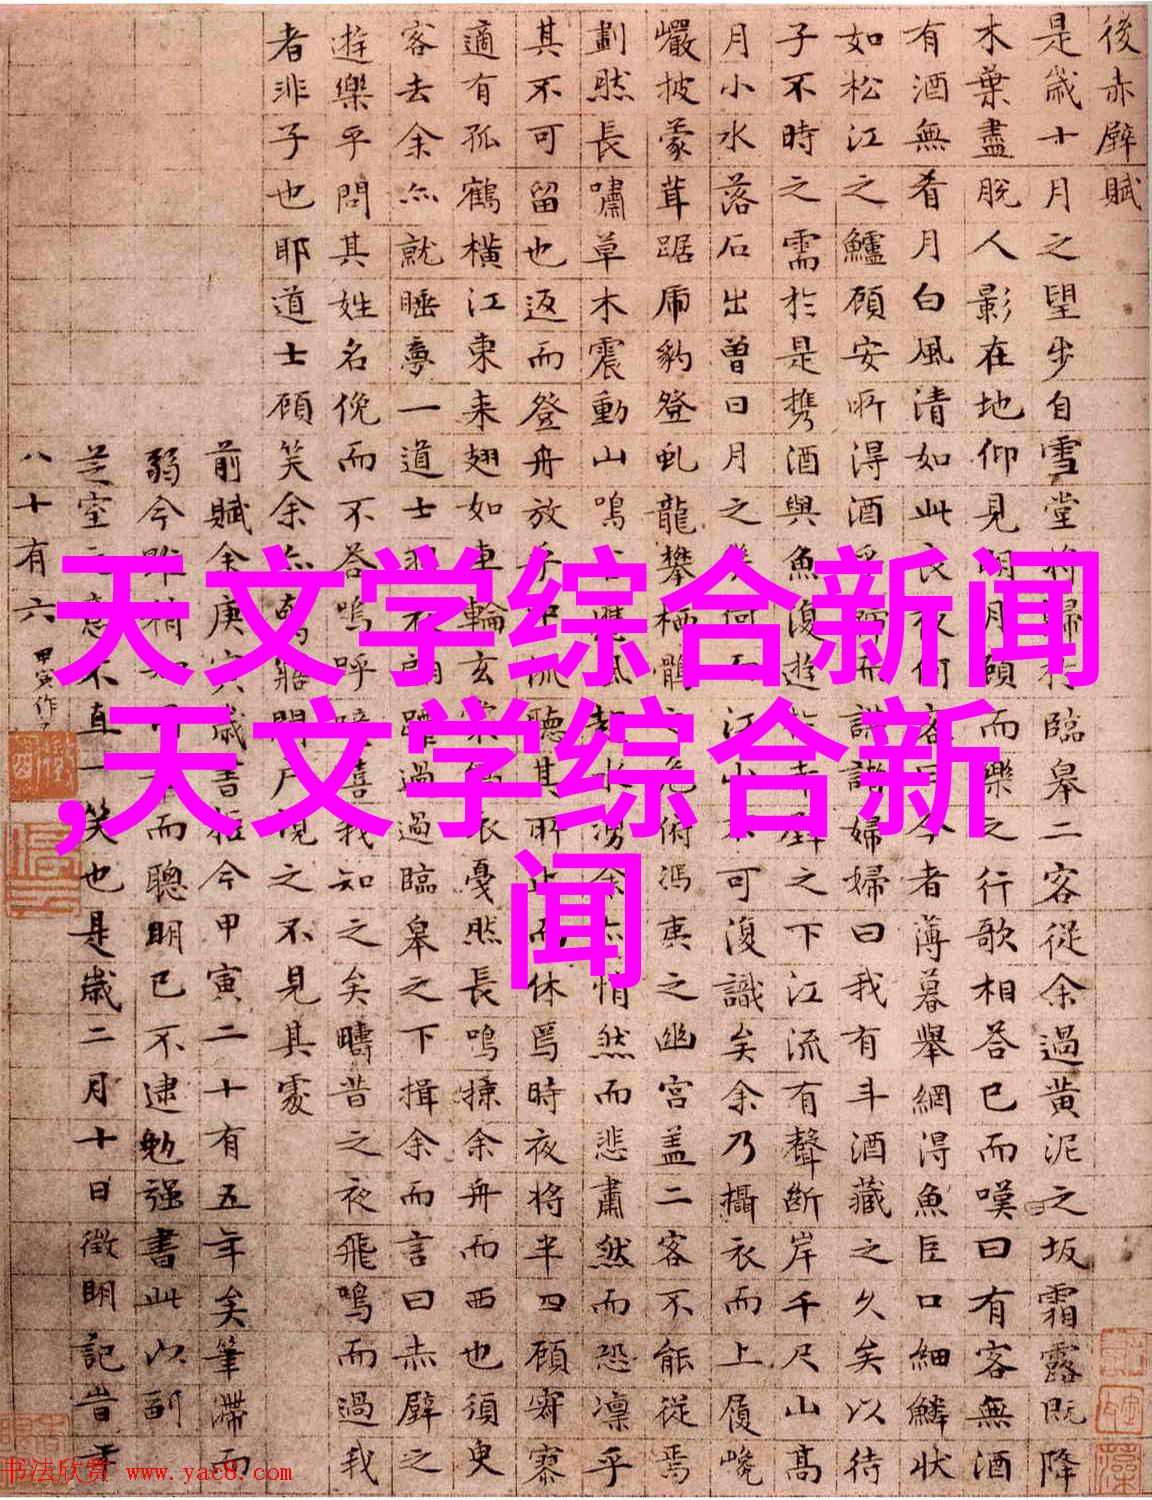 後赤壁賦
是歲十月之望步自雪堂將歸於臨皋二客從余過黃泥之坂霜露既降
木葉盡脫人影在地仰見明月顧而樂之行歌相答已而嘆曰有客無酒
有酒無肴月白風清如此良夜何客曰今者薄暮舉網得魚巨口細鱗狀
如松江之鱸顧安所得酒乎歸而謀諸婦婦曰我有斗酒藏之久矣以待
子不時之需於是攜酒與魚復遊於赤壁之下江流有聲斷岸千尺山高
月小水落石出曾日月之幾何而江山不可復識矣余乃攝衣而上履巉
巖披蒙茸踞虎豹登虬龍攀栖鶻之危俯馮夷之幽宮盖二客不能從焉
劃然長嘯草木震動山鳴谷應風起水湧余亦悄然而悲肅然而恐凜乎
其不可留也返而登舟放乎中流聽其所止而休焉時夜將半四顧寂寥
適有孤鶴橫江東來翅如車輪玄裳縞衣戛然長鳴掠余舟而西也須臾
客去余亦就睡夢一道士羽衣翩躚過過臨皋之下揖余而言曰赤壁之
遊樂乎問其姓名俛而不答嗚呼噫嘻我知之矣疇昔之夜飛鳴而過我
者非子也耶道士顧笑余亦驚寤開戶視之不見其處
前賦余庚寅歲書抵今甲寅二十有五年矣筆滯而
弱今雖稍而聰明已不逮勉强書此以副
芝室之意不直一笑也是歲二月十日徵明記旹年
八十有六
甲寅作
天文学综合新闻
,天文学综合新
闻
书法欣赏 www.yac8.com